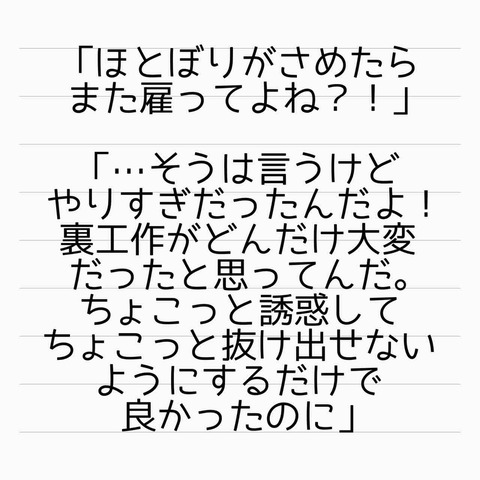 「ほとぼりがさめたら
また雇ってよね？！」
「…そうは言うけど
やりすぎだったんだよ！
裏工作がどんだけ大変
だったと思ってんだ。
ちょこっと誘惑して
ちょこっと抜け出せない
ようにするだけで
良かったのに」